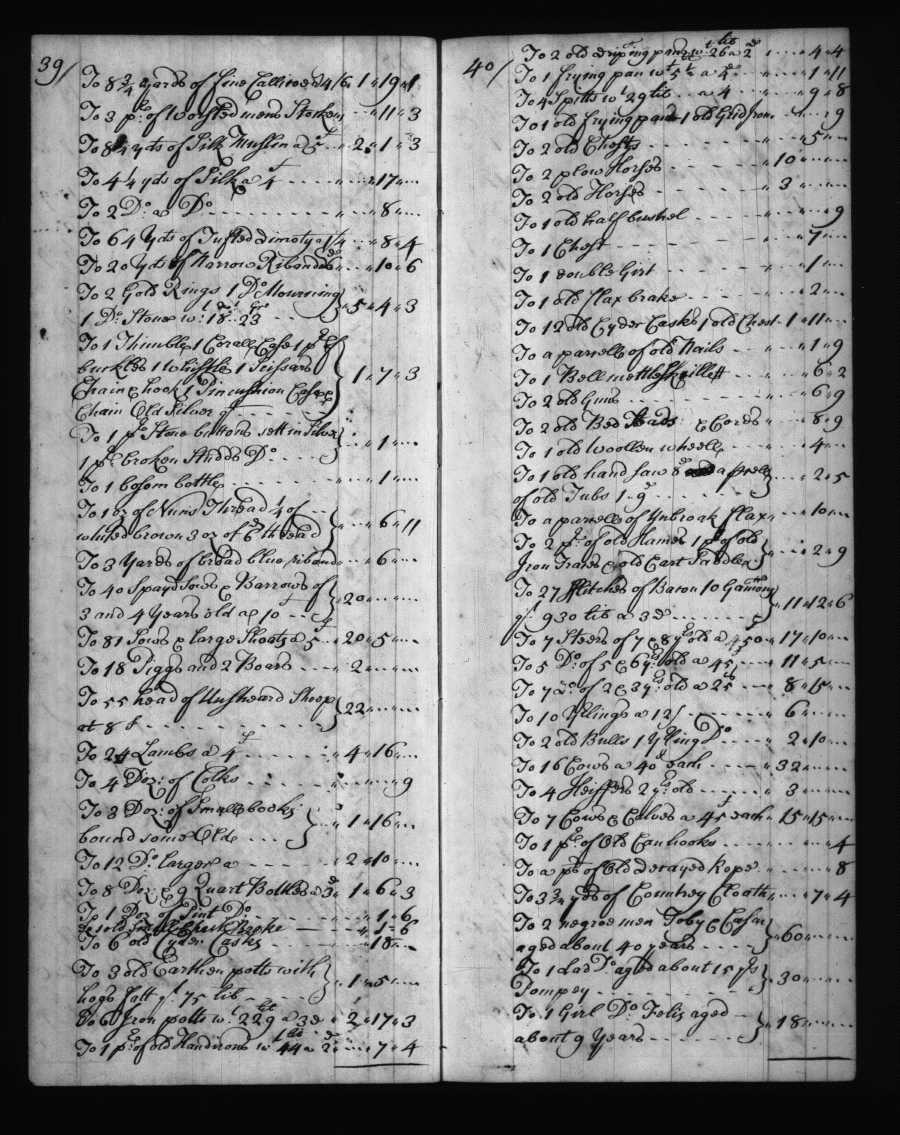 39/
To 8 3/4 yards of fine Callicoe a 4/6 1 " 19 " 1
To 3 pr: of Worsted mens " 11 " 3
To 8 1/4 yds of Silk Muslin a 5s 2 " 1 " 3
To 4 1/4 yds of Silk a 4s " 17 "
To 2 Do: a Do " 8 "
To 6 1/4 Yds of Tufted Dimoty a 1/4 " 8 " 4
To 20 yds of Narrow Riband " 10 " 6
To 2 Gold Rings 1 Do Mourning
1 Do: Stone wt: 18 .. 23 5 " 4 " 3
To 1 Thimble 1 Corall Case 1 pr of
buckles 1 whistle 1 Scissars
Chain & hook 1 Pincushion Case &
Chain Old Silver 1 " 7 " 3
To 1 pr Stone buttons sett in Silver
1 pr broken Studds Do " 1 "
To 1 bosom bottle " 1 "
To 1 oz of Nuns Thread 1/4 of
whited brown 3 oz of Cd thread " 6 " 11
To 3 Yards of broad blue riband " 6 "
To 40 Spayd Sows & Barrows of
3 and 4 Years old a 10s 20 "
To 81 Sows & large Shoats a 5s 20 " 5 "
To 18 Piggs and 2 Boars 2 "
To 55 head of Unsheard Sheep
at 8s 22 "
To 24 Lambs a 4s 4 " 16 "
To 4 Doz: of Corks " 9
To 3 Doz: of Small books
bound some Old 1 " 16 "
To 12 Do: larger a 2 " 10 "
To 8 Doz & 9 Quart Bottles a 3d 1 " 6 " 3
To 1 Doz of Pint Do " 1 " 6
To 1 old Small " 1 " 6
To 6 old Cyder Casks " 18 "
To 3 old Earthen potts with
hogs fatt qt. 75 lib 1 " 5 "
To 6 Iron potts wt 229 lib a 3d 2 " 17 " 3
To 1 pr: of old Handirons wt 44 lib a 2d " 7 " 4
40/
To 2 old driping pans wt 26 lib a 2d " 4 " 4
To 1 frying pan wt 5 3/4 a 4d " 1 " 11
To 4 Spitts wt 29 lib a 4 " 9 " 8
To 1 old frying pan 1 old Gridiron " 9
To 2 old Chests " 5 "
To 2 plow Horses 10 "
To 2 old Horses 3 "
To 1 old half bowshel " 9
To 1 Chest " 7 "
To 1 double Girt " 1 "
To 1 old flax brake " 2 "
To 12 old Cyder Casks 1 old Chest 1 " 11 "
To a parcell of old Nails " 1 " 9
To 1 Bellmettle Skillett " 6 " 2
To 2 old Guns " 6 " 9
To 2 old Bed Steads & Cords " 8 " 9
To 1 old woollen wheell " 4 "
To 1 old hand saw 8d a parcell
of old Tubs 1..9d " 2 " 5
To a parcell of Unbroak flax " 10 "
To 2 pr: of old Hames 1 pr of old
Iron Traces & old Cart Saddle " 2 " 9
To 27 fflitches of Bacon 10 Gamons
qt. 930 lib a 3d 11 " 12 " 6
To 7 Steers of 7 & 8 yrs old a 50s 17 " 10 "
To 5 Do: of 5 & 6 yrs old a 45s 11 " 5 "
To 7 do: of 2 & 3 yrs old a 25s 8 " 15 "
To 10 Yllings a 12/ 6 "
To 2 old Bulls 1 Ylling Do 2 " 10 "
To 16 Cows a 40s each 32 "
To 4 Heiffers 2 yrs: old 3 "
To 7 Cows & Calves a 45s each 15 " 15 "
To 1 pr: of Old Canhooks " 4
To a ps of Old decayed Rope " 8
To 3 3/4 yds of Countrey Clooth " 7 " 4
To 2 negroe men Toby & Cesar
aged about 40 years 60 "
To 1 Lad Do: aged about 15 yrs
Pompey 30 "
To 1 Girl Do: Felis aged
about 9 Years 18 "